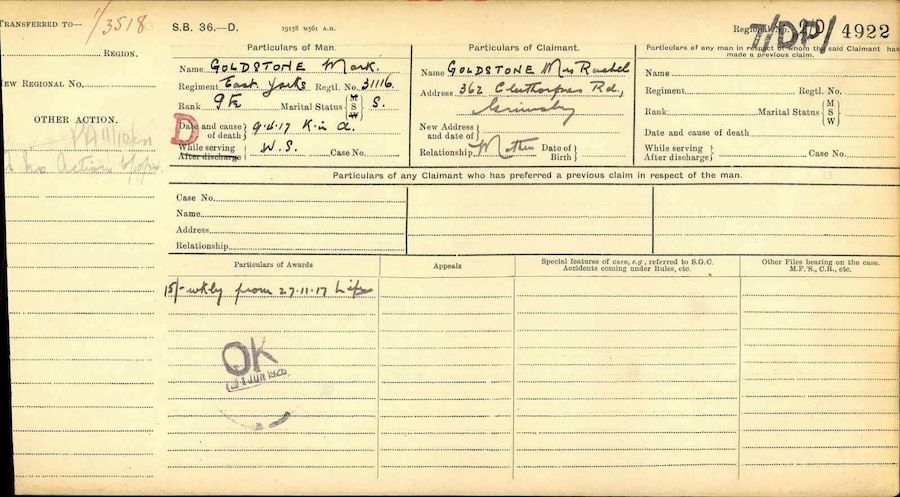 TRANSFERRED TO—
1/3518
REGION.
NEW REGIONAL NO.
OTHER ACTION.
No Action
S.B. 36.—D.
19158 M561 A.H.
Regional No.
T/DP/ 4922
Particulars of Man.
Name GOLDSTONE Mark.
Regiment East Yorks Regtl. No. 31116.
Rank Marital Status { M S W } S.
D
Date and cause of death } 9.4.17 K in a.
While serving
After discharge } W.S. Case No.
Particulars of Claimant.
Name GOLDSTONE Mrs Rachel
Address 362 Cleethorpes Rd.,
Grimsby
New Address and date of }
Relationship Mother Date of Birth }
Particulars of any man in respect of whom the said Claimant has made a previous claim.
Name
Regiment Regtl. No.
Rank Marital Status { M S W
Date and cause of death
While serving
After discharge } Case No.
Particulars of any Claimant who has preferred a previous claim in respect of the man.
Case No.
Name
Address
Relationship
Particulars of Awards
Appeals
Special features of case, e.g., referred to S.G.C. Accidents coming under Rules, etc.
Other Files bearing on the case. M.F.'S., C.R., etc.
15/- wkly from 27.11.17 Life
OK
JUN 1926